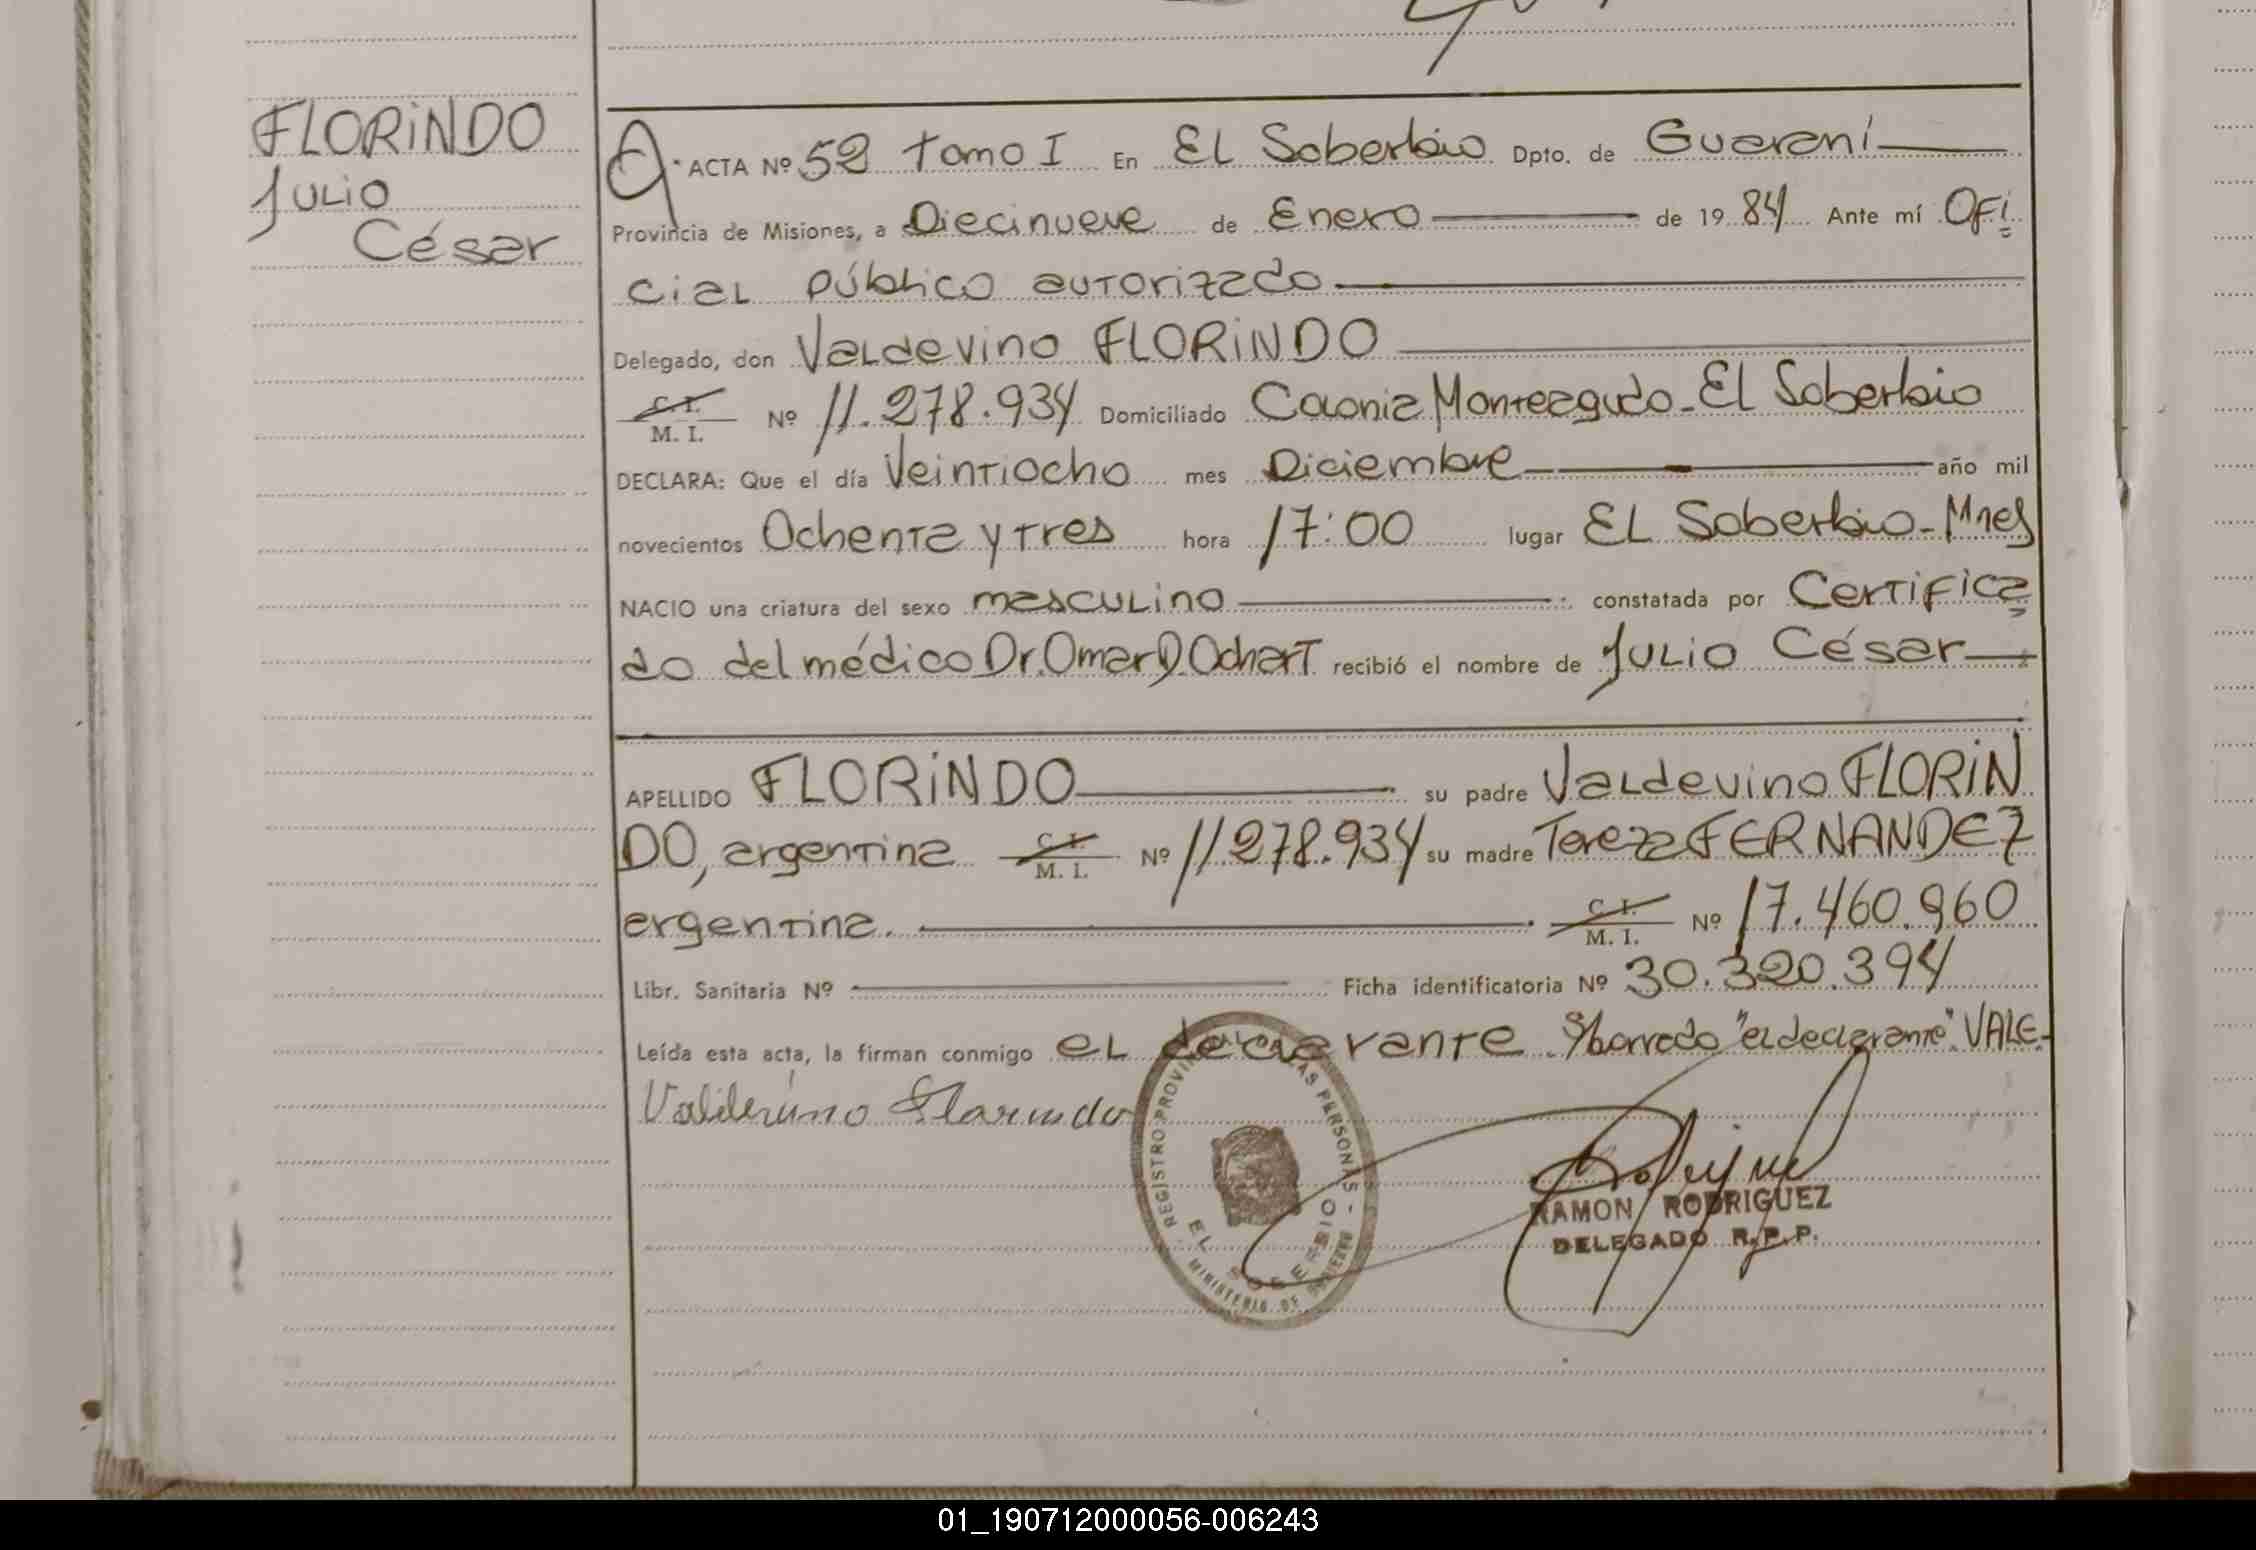 FLORINDO
Julio
César
ACTA Nº 52 Tomo I En El Soberbio Dpto. de Guaraní
Provincia de Misiones, a Diecinueve de Enero de 1984 Ante mí Ofi
cial público autorizado
Delegado, don Valdevino FLORINDO
C. I.
M. I. Nº 11.278.934 Domiciliado Colonia Monteagudo - El Soberbio
DECLARA: Que el día Veintiocho mes Diciembre año mil
novecientos Ochenta y Tres hora 17:00 lugar El Soberbio - Mnes
NACIO una criatura del sexo masculino constatada por Certifica
do del médico Dr. Omar D. Ochart recibió el nombre de Julio César
APELLIDO FLORINDO su padre Valdevino FLORIN
DO, argentina C. I. M. I. Nº 11.278.934 su madre Tereza FERNANDEZ
argentina. C. I. M. I. Nº 17.460.960
Libr. Sanitaria Nº Ficha identificatoria Nº 30.320.394
Leída esta acta, la firman conmigo el declarante S/borrado "el declarante" VALE.-
Valdevino Florindo
REGISTRO PROVINCIAL DE LAS PERSONAS - EL SOBERBIO
MINISTERIO DE GOBIERNO
RAMON RODRIGUEZ
DELEGADO R.P.P.
01_190712000056-006243